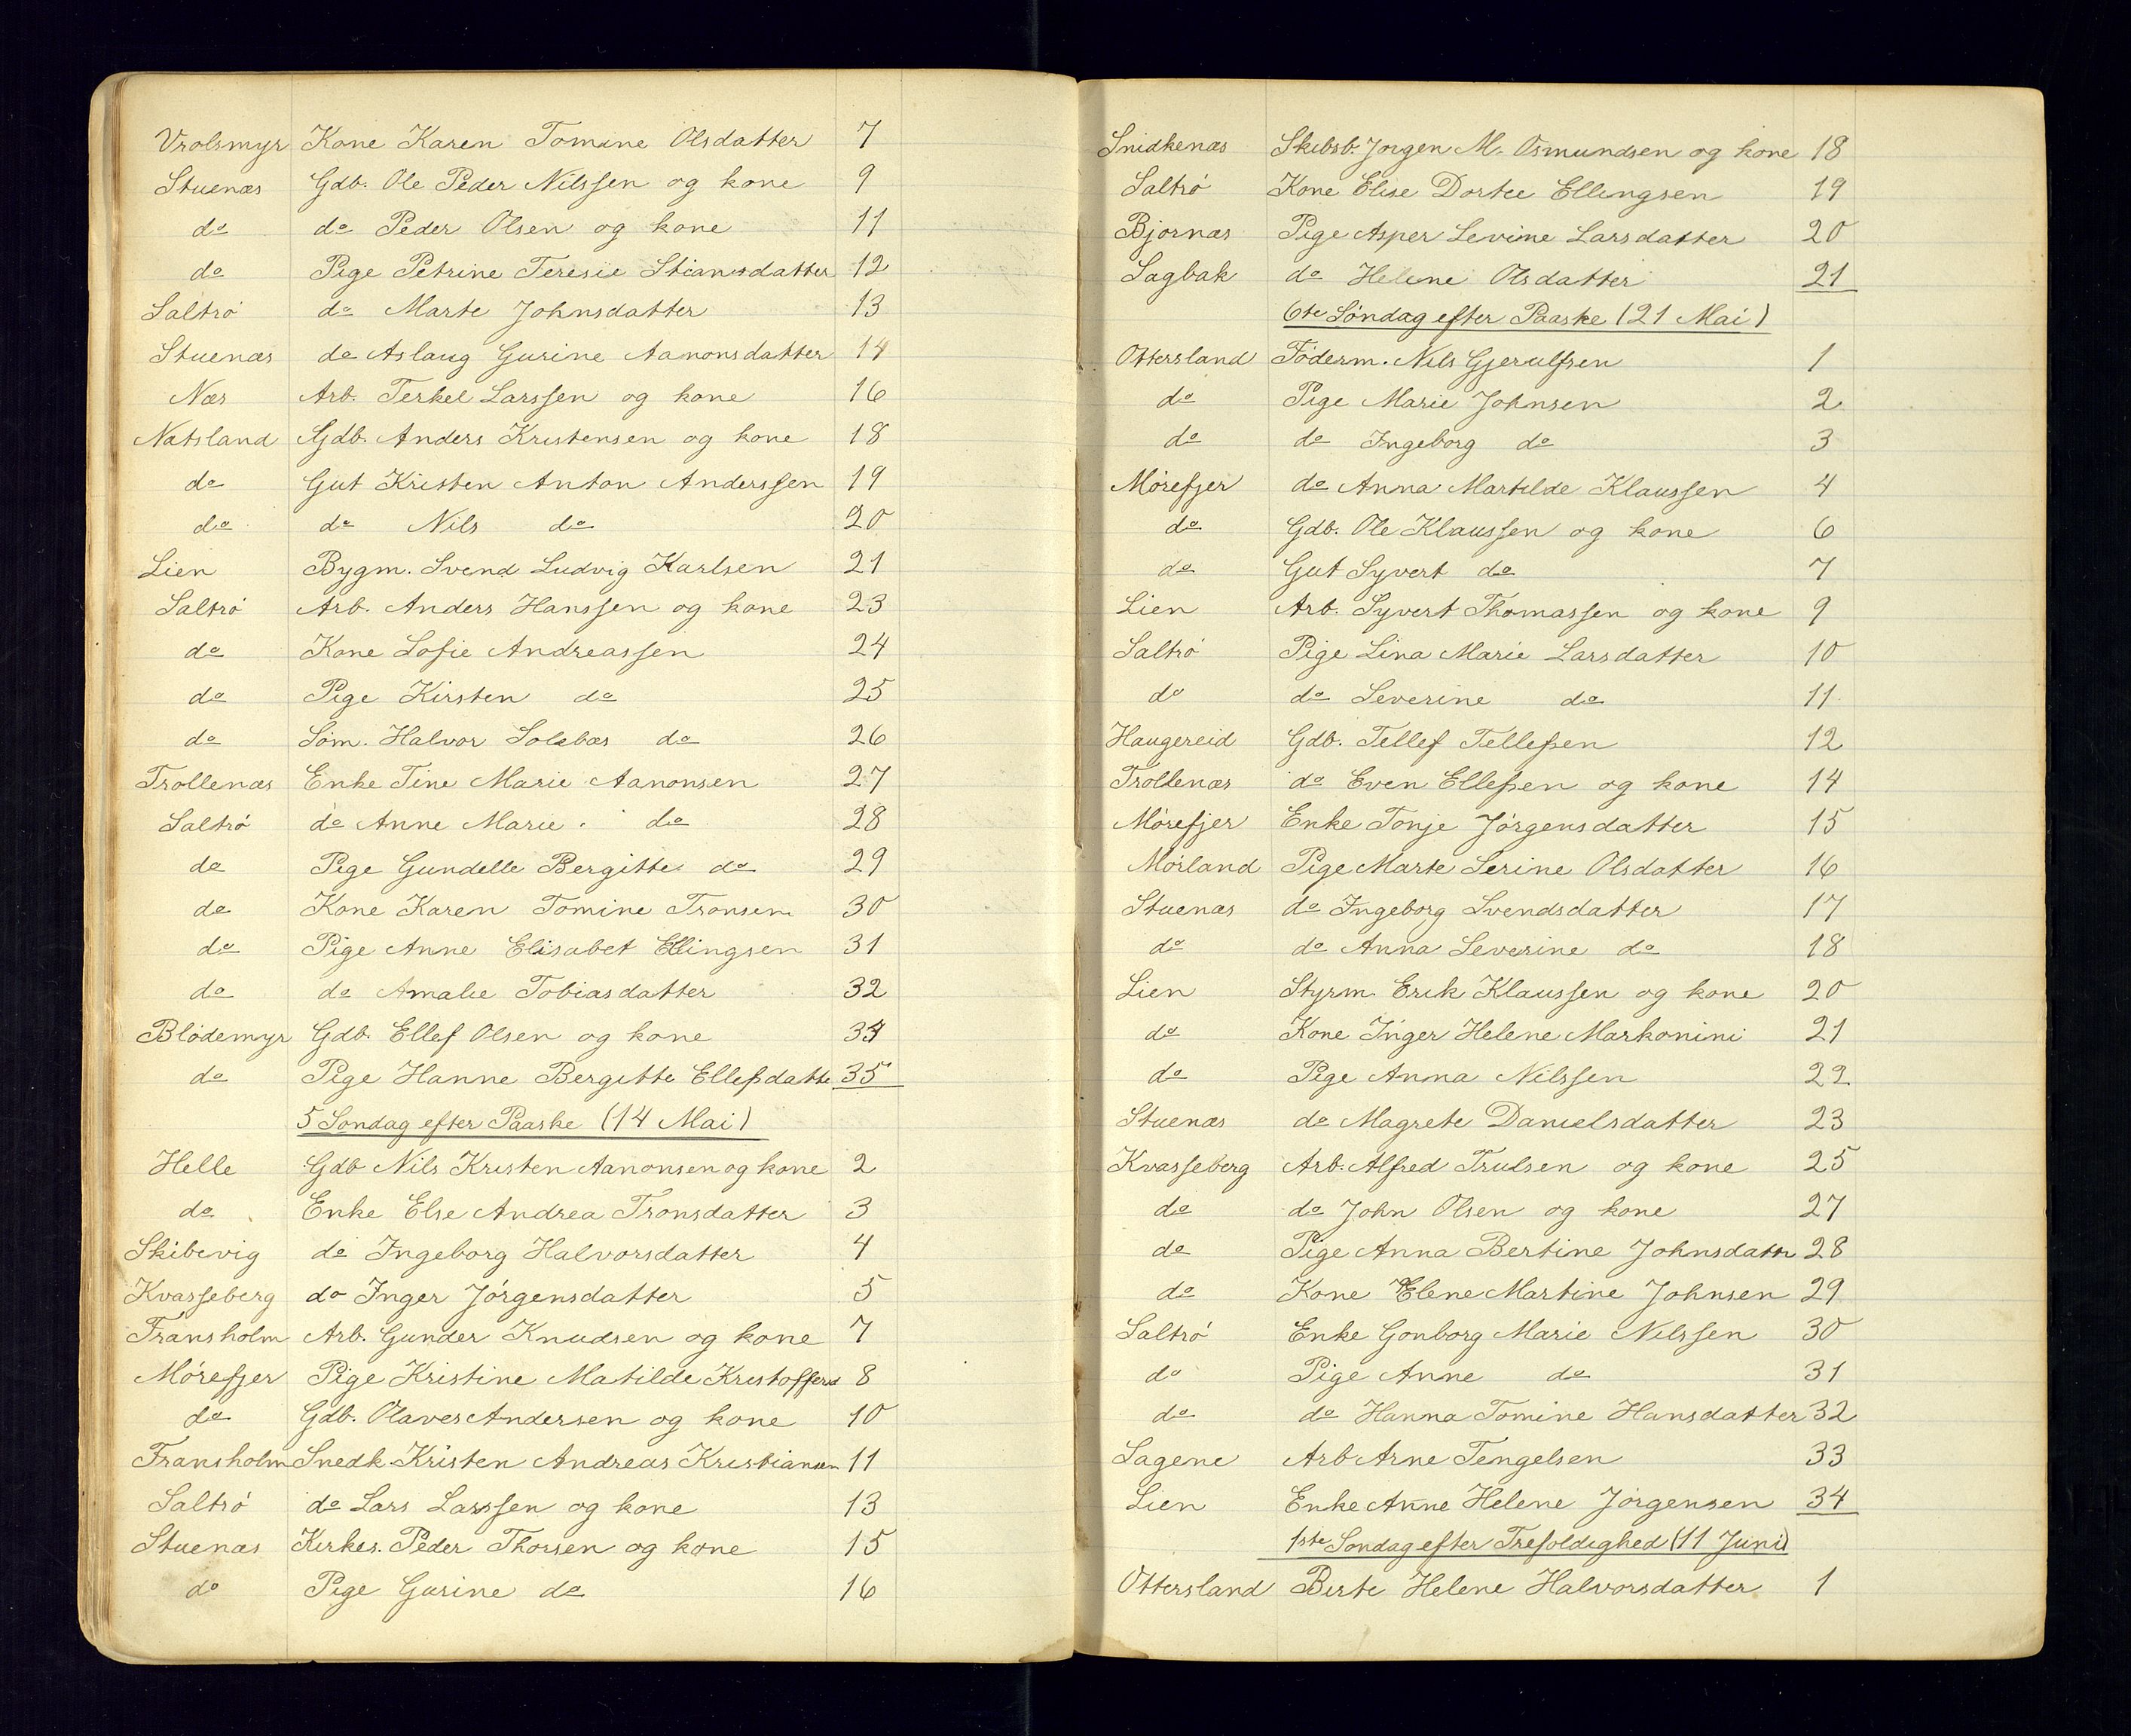 Vrolsmyr Kone Karen Tomine Olsdatter 7
Stuenæs Gdb. Ole Peder Nilssen og kone 9
do do Peder Olsen og kone 11
do Pige Petrine Teresie Stiansdatter 12
Saltrö do Marte Johnsdatter 13
Stuenæs do Aslaug Gurine Aanonsdatter 14
Næs Arb. Terkel Larssen og kone 16
Natsland Gdb. Anders Kristensen og kone 18
do Gut Kristen Anton Anderssen 19
do do Nils do 20
Lien Bygm. Svend Ludvig Karlsen 21
Saltrö Arb. Anders Hanssen og kone 23
do Kone Sofie Andreassen 24
do Pige Kirsten do 25
do Söm. Halvor Solebær do 26
Trollenæs Enke Tine Marie Aanonsen 27
Saltrö do Anne Marie do 28
do Pige Gundelle Bergitte do 29
do Kone Karen Tomine Tronsen 30
do Pige Anne Elisabet Ellingsen 31
do do Amalie Tobiasdatter 32
Blödemyr Gdb. Ellef Olsen og kone 34
do Pige Hanne Bergitte Ellefsdatte 35
5 Söndag efter Paaske (14 Mai)
Helle Gdb Nils Kristen Aanonsen og kone 2
do Enke Else Andrea Tronsdatter 3
Skibevig do Ingeborg Halvorsdatter 4
Kvasseberg do Inger Jörgensdatter 5
Fransholm Arb. Gunder Knudsen og kone 7
Mörefjer Pige Kristine Matilde Kristoffersd 8
do Gdb. Olaves Andersen og kone 10
Fransholm Snedk. Kristen Andreas Kristiansen 11
Saltrö do Lars Larssen og kone 13
Stuenæs Kirkes. Peder Thorsen og kone 15
do Pige Gurine do 16
Snidkenæs Skibsb. Jörgen M. Osmundsen og kone 18
Saltrö Kone Elise Dortee Ellingsen 19
Björnæs Pige Asper Levine Larsdatter 20
Sagbak do Helene Olsdatter 21
6te Söndag efter Paaske (21 Mai)
Ottersland Föderm. Nils Gjerulfsen 1
do Pige Marie Johnsen 2
do do Ingeborg do 3
Mörefjer do Anna Martilde Klaussen 4
do Gdb. Ole Klaussen og kone 6
do Gut Syvert do 7
Lien Arb. Syvert Thomassen og kone 9
Saltrö Pige Lina Marie Larsdatter 10
do do Severine do 11
Haugereid Gdb. Tellef Tellefsen 12
Trollenæs do Even Ellefsen og kone 14
Mörefjer Enke Tonje Jörgensdatter 15
Mörland Pige Marte Serine Olsdatter 16
Stuenæs do Ingeborg Svendsdatter 17
do do Anna Severine do 18
Lien Styrm. Erik Klaussen og kone 20
do Kone Inger Helene Markonini 21
do Pige Anna Nilssen 22
Stuenæs do Magrete Danielsdatter 23
Kvasseberg Arb. Alfred Trulsen og kone 25
do do John Olsen og kone 27
do Pige Anna Bertine Johnsdattr 28
do Kone Elene Martine Johnsen 29
Saltrö Enke Gonborg Marie Nilssen 30
do Pige Anne do 31
do do Hanna Tomine Hansdatter 32
Sagene Arb Arne Tengelsen 33
Lien Enke Anne Helene Jörgensen 34
1ste Söndag efter Trefoldighed (11 Juni)
Ottersland Birte Helene Halvorsdatter 1